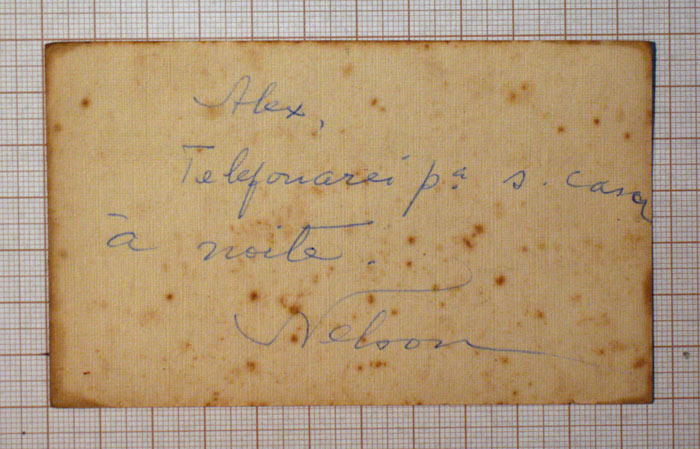 Alex,
Telefonarei pª s. casa
à noite.
Nelson